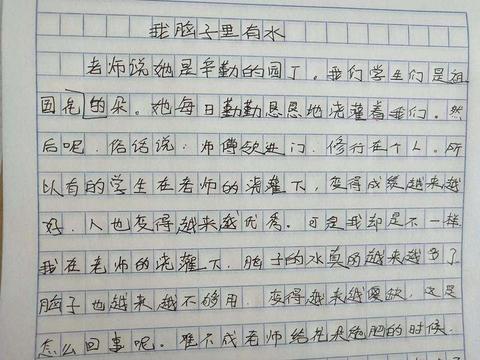 我脑子里有水
老师说她是辛勤的园丁。我们学生们是祖
国花的朵。她每日勤勤恳恳地浇灌着我们。然
后呢，俗话说：师傅领进门，修行在个人。所
以有的学生在老师的浇灌下，变得成绩越来越
好，人也变得越来越优秀。可是我却是不一样
我在老师的浇灌下，脑子的水真的越来越多了
脑子也越来越不够用，变得越来越，这是
怎么回事呢。难不成老师给花朵施肥的时候，